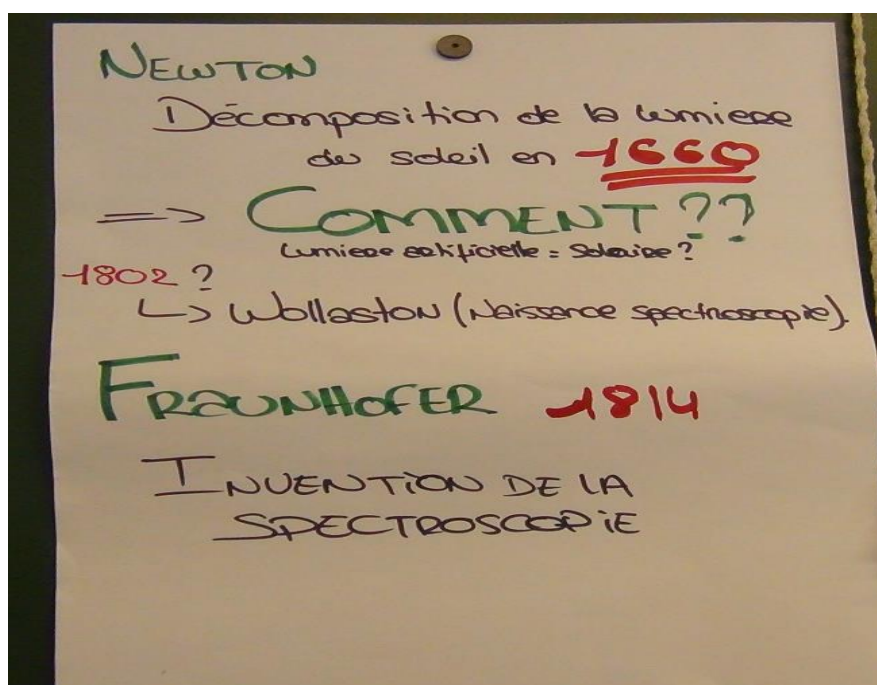 NEWTON
Décomposition de la lumiere
du soleil en 1660
=> COMMENT ??
Lumiere artificielle = Solaire ?
1802 ?
↳ Wollaston (Naissance spectroscopie).
FRAUNHOFER 1814
INVENTION DE LA
SPECTROSCOPIE